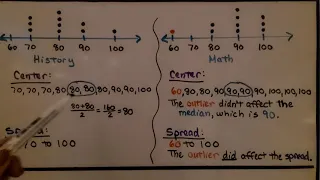 60 70 80 90 100
History
Center:
70,70,70,80,80,80,80,90,90,100
80+80
2
=
160
2
= 80
Spread:
to 100
60 70 80 90 100
Math
Center:
60,80,80,80,90,90,90,90,100,100
The outlier didn't affect the
median, which is 90.
Spread:
60 to 100
The outlier did affect the spread.